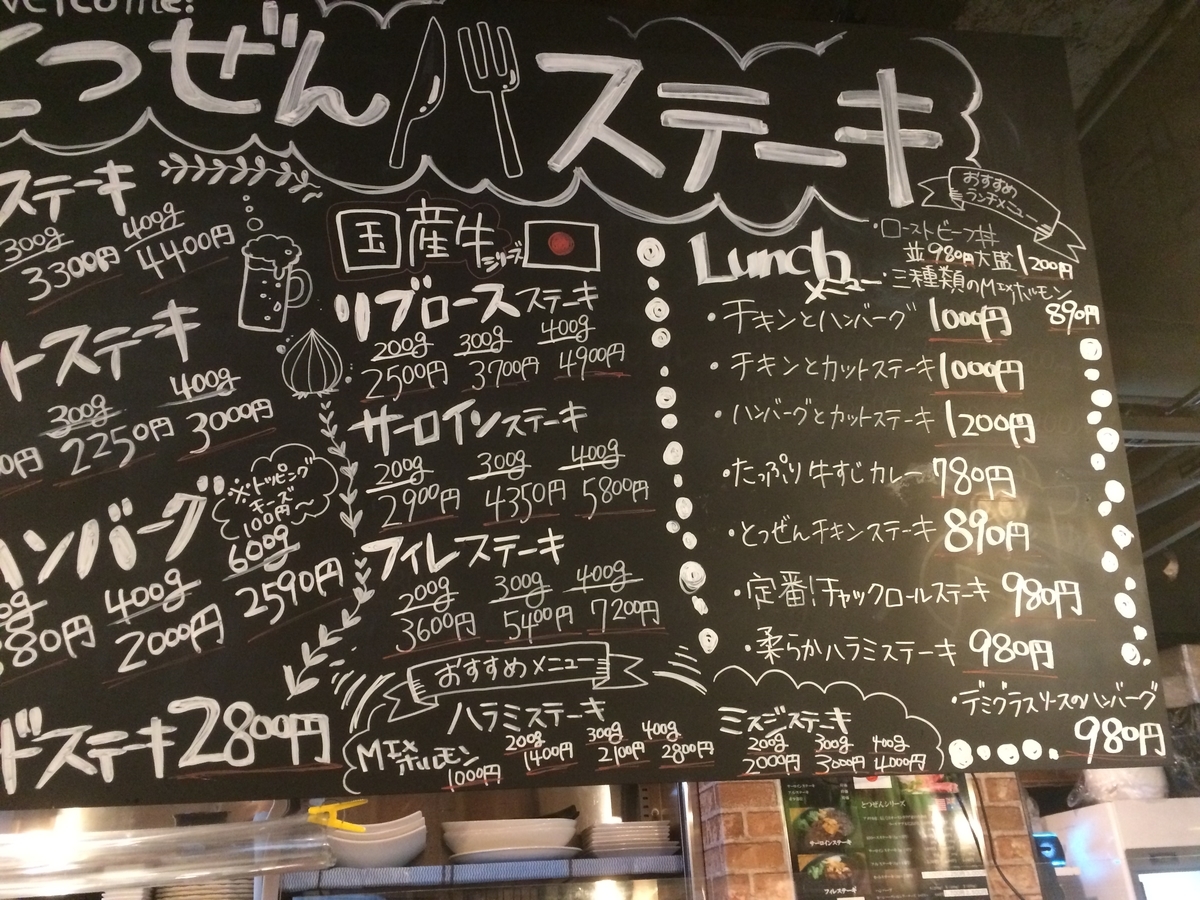 welcome!
とつぜん ステーキ
ステーキ
300g 400g
3300円 4400円
トステーキ
300g 400g
2250円 3000円
ハンバーグ
※トッピング
チーズ
100円〜
400g 600g
2000円 2590円
ドステーキ 2800円
国産牛シリーズ
リブロースステーキ
200g 300g 400g
2500円 3700円 4900円
サーロインステーキ
200g 300g 400g
2900円 4350円 5800円
フィレステーキ
200g 300g 400g
3600円 5400円 7200円
おすすめメニュー
ハラミステーキ
200g 300g 400g
1400円 2100円 2800円
MIXホルモン
1000円
ミスジステーキ
200g 300g 400g
2000円 3000円 4000円
おすすめ
ランチメニュー
・ローストビーフ丼
並980円大盛1200円
・三種類のMIXホルモン
890円
Lunchメニュー
・チキンとハンバーグ 1000円
・チキンとカットステーキ 1000円
・ハンバーグとカットステーキ 1200円
・たっぷり牛すじカレー 780円
・とつぜんチキンステーキ 890円
・定番!チャックロールステーキ 980円
・柔らかハラミステーキ 980円
・デミグラスソースのハンバーグ
980円
とつぜんシリーズ
サーロインステーキ
フィレステーキ